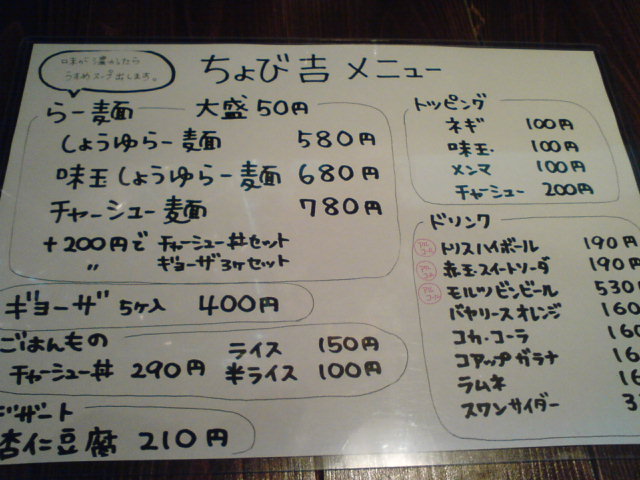 味が濃かったら
うすめスープ出します。
ちょび吉 メニュー
らー麺 大盛50円
しょうゆらー麺 580円
味玉しょうゆらー麺 680円
チャーシュー麺 780円
+200円で チャーシュー丼セット
〃 ギョーザ3ヶセット
ギョーザ 5ヶ入 400円
ごはんもの
ライス 150円
チャーシュー丼 290円 半ライス 100円
デザート
杏仁豆腐 210円
トッピング
ネギ 100円
味玉 100円
メンマ 100円
チャーシュー 200円
ドリンク
アルコール トリスハイボール 190円
アルコール 赤玉スイートソーダ 190円
アルコール モルツビンビール 530
バヤリースオレンジ 160
コカ・コーラ 160
コアップガラナ 16
ラムネ 16
スワンサイダー